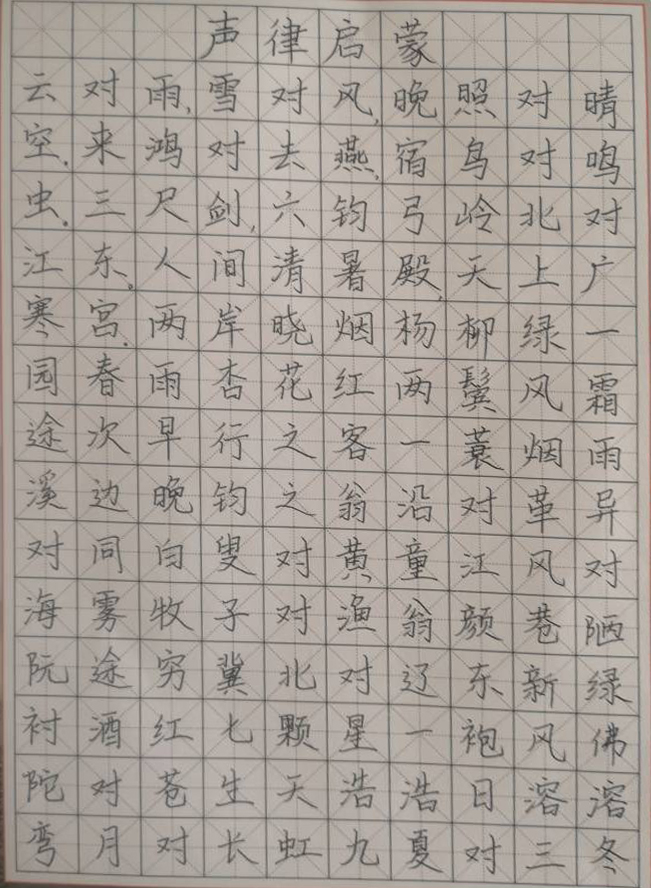 声律启蒙
云对雨,雪对风,晚照对晴
空.来鸿对去燕,宿鸟对鸣
虫.三尺剑,六钧弓岭北对
江东。人间清暑殿,天上广
寒宫.两岸晓烟杨柳绿一
园春雨杏花红两鬓风霜
途次早行之客一蓑烟雨
溪边晚钓之翁沿对革异
对同白叟对黄童江风对
海雾牧子对渔翁颜巷陋
阮途穷冀北对辽东新绿
衬酒红七颗星一袍风佛
陀对苍生天浩浩日溶溶
弯月对长虹九夏对三冬